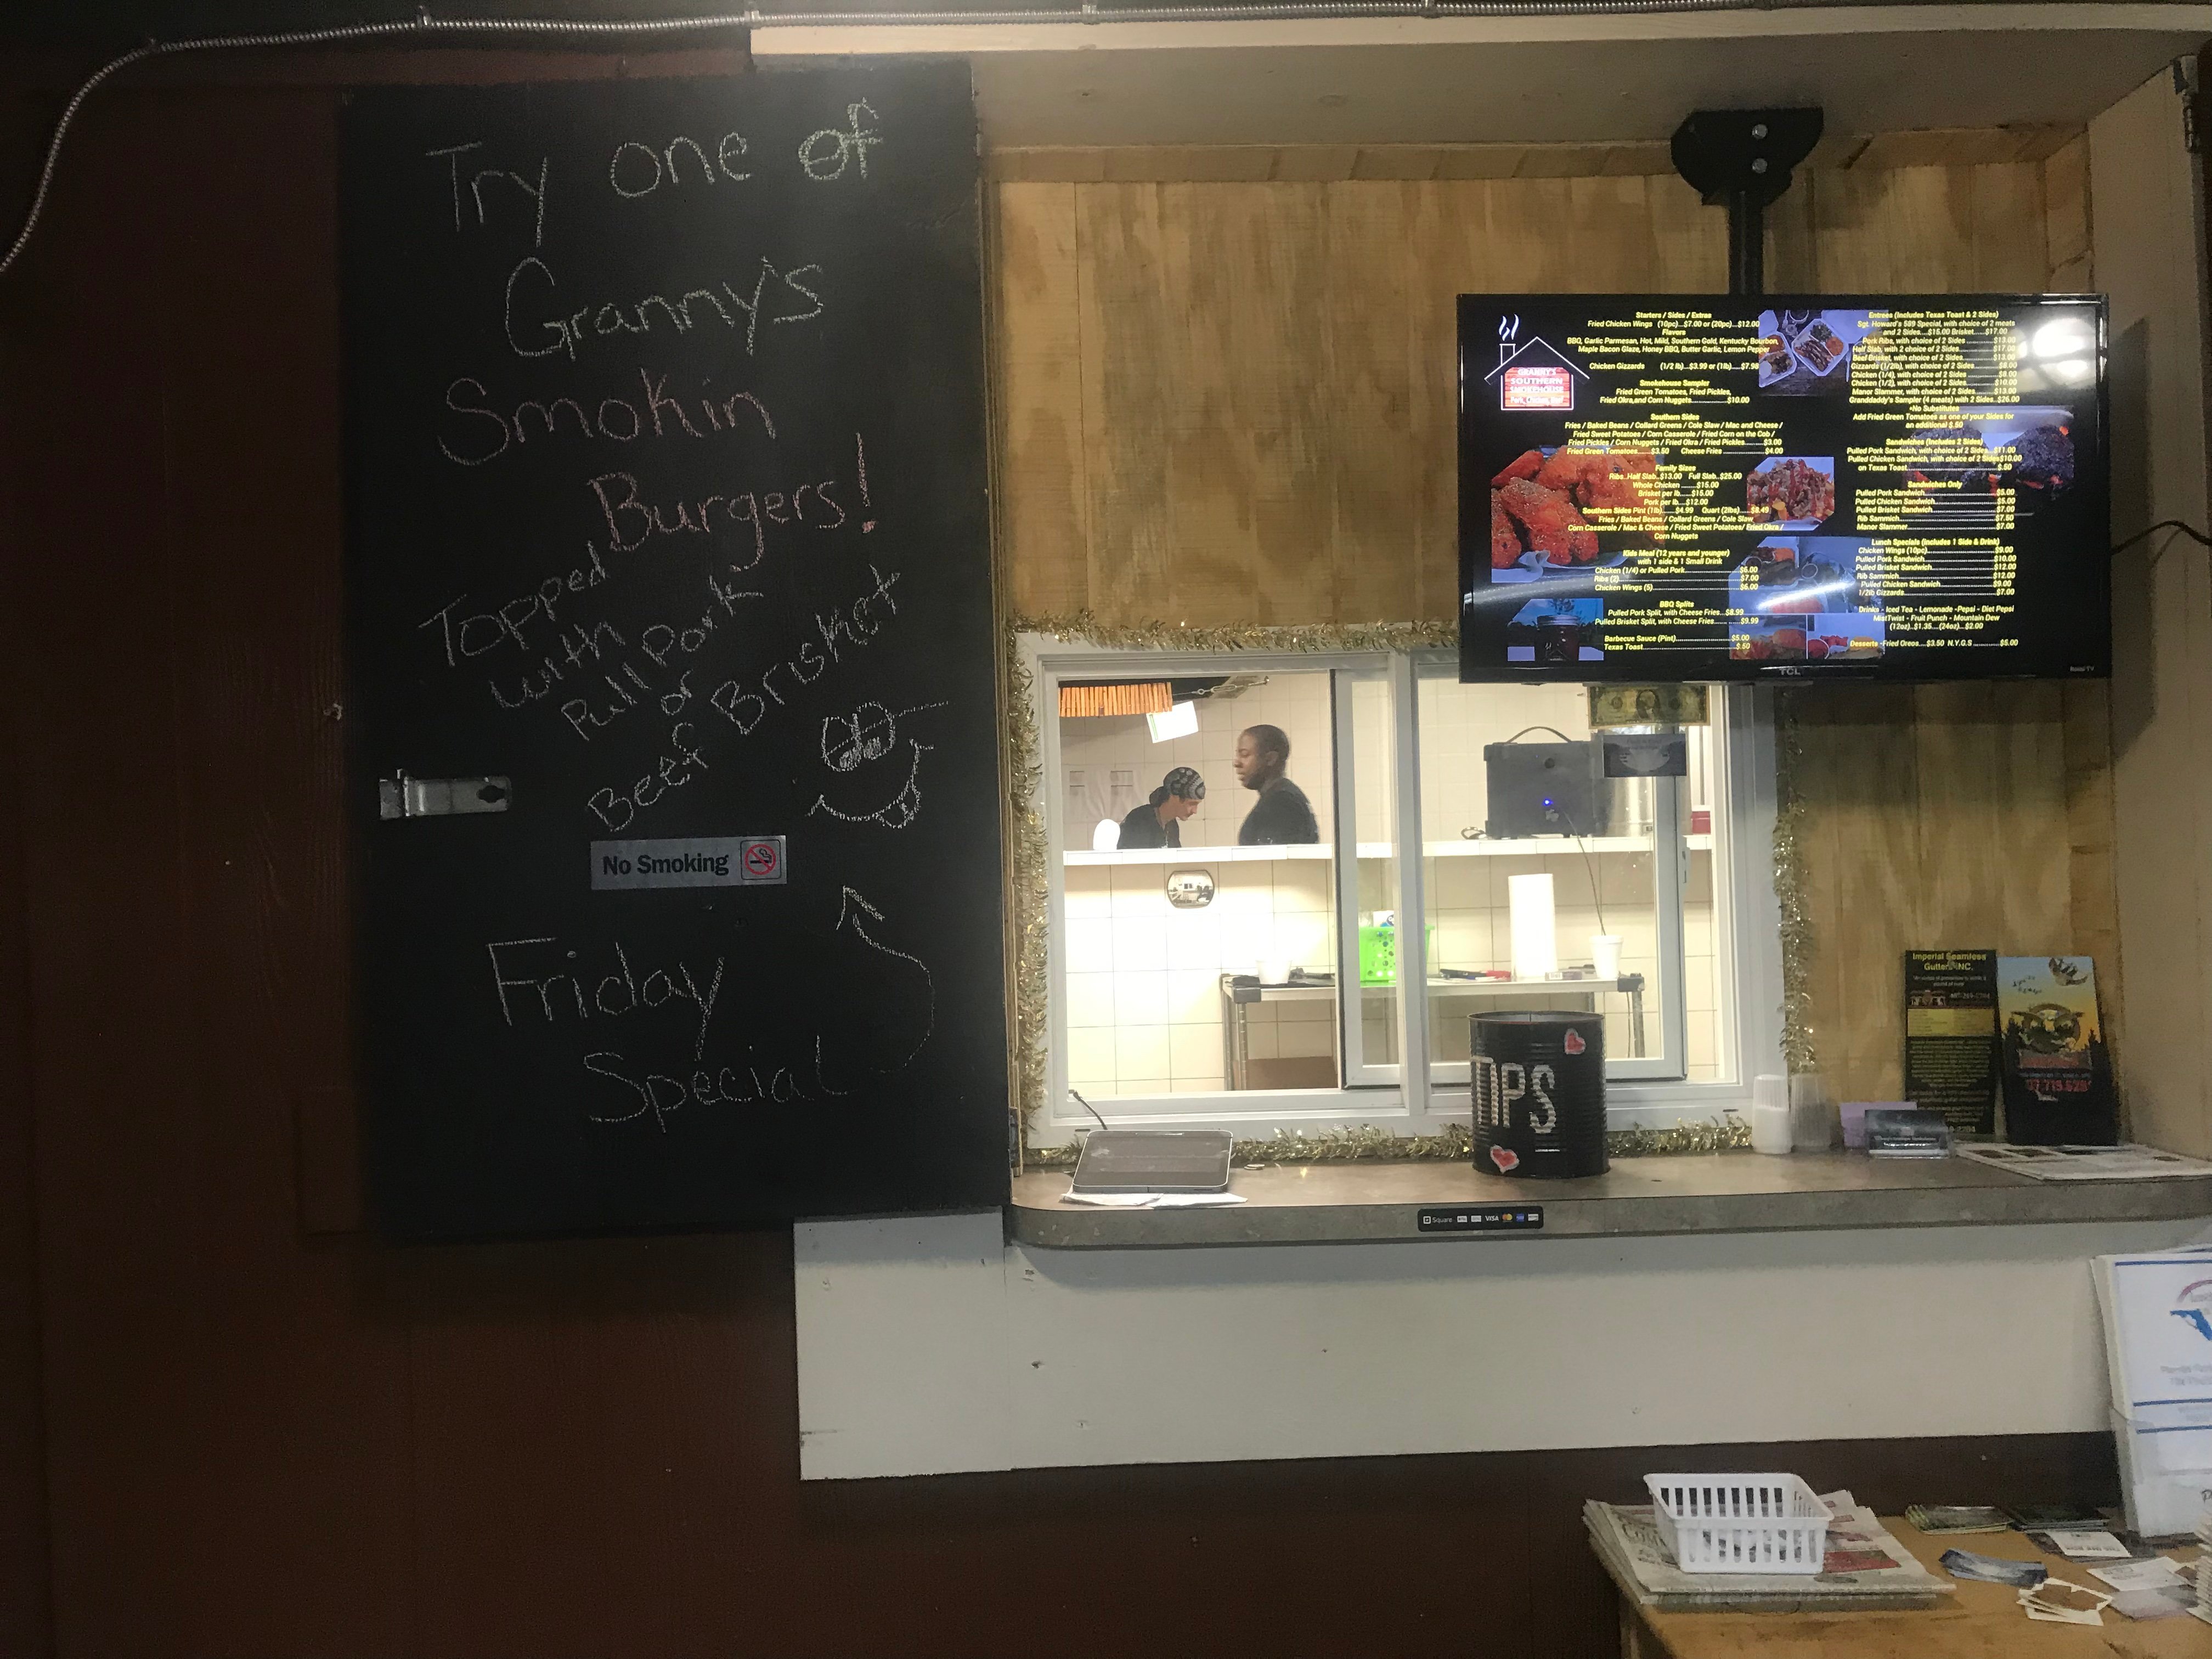 Try one of
Granny's
Smokin
Burgers!
Topped
with
Pull Pork
or
Beef Brisket
No Smoking
Friday
Special
GRANNY'S
SOUTHERN
SMOKEHOUSE
Pork, Chicken, Beef
Starters / Sides / Extras
Fried Chicken Wings (10pc)...$7.00 or (20pc)...$12.00
Flavors
BBQ, Garlic Parmesan, Hot, Mild, Southern Gold, Kentucky Bourbon,
Maple Bacon Glaze, Honey BBQ, Butter Garlic, Lemon Pepper
Chicken Gizzards (1/2 lb)...$3.99 or (1lb)....$7.98
Smokehouse Sampler
Fried Green Tomatoes, Fried Pickles,
Fried Okra,and Corn Nuggets..............$10.00
Southern Sides
Fries / Baked Beans / Collard Greens / Cole Slaw / Mac and Cheese /
Fried Sweet Potatoes / Corn Casserole / Fried Corn on the Cob /
Fried Pickles / Corn Nuggets / Fried Okra / Fried Pickles..........$3.00
Fried Green Tomatoes.....$3.50 Cheese Fries ..............$4.00
Family Sizes
Ribs..Half Slab..$13.00 Full Slab..$25.00
Whole Chicken ........$15.00
Brisket per lb.....$15.00
Pork per lb....$12.00
Southern Sides Pint (1lb).....$4.99 Quart (2lbs)....$8.49
Fries / Baked Beans / Collard Greens / Cole Slaw
Corn Casserole / Mac & Cheese / Fried Sweet Potatoes/ Fried Okra /
Corn Nuggets
Kids Meal (12 years and younger)
with 1 side & 1 Small Drink
Chicken (1/4) or Pulled Pork..................$6.00
Ribs (2)................................$7.00
Chicken Wings (5)....................$6.00
BBQ Splits
Pulled Pork Split, with Cheese Fries...$8.99
Pulled Brisket Split, with Cheese Fries...... ......$9.99
Barbecue Sauce (Pint)................$5.00
Texas Toast..........................$.50
Entrees (Includes Texas Toast & 2 Sides)
Sgt. Howard's 589 Special, with choice of 2 meats
and 2 Sides....$15.00 Brisket......$17.00
Pork Ribs, with choice of 2 Sides
Half Slab, with 2 choice of 2 Sides
Beef Brisket, with choice of 2 Sides
Gizzards (1/2lb), with choice of 2 Sides
Chicken (1/4), with choice of 2 Sides
Chicken (1/2), with choice of 2 Sides
Manor Slammer, with choice of 2 Sides
Granddaddy's Sampler (4 meats) with 2 Sides..$26.00
*No Substitutes
Add Fried Green Tomatoes as one of your Sides for
an additional $.50
Sandwiches (Includes 2 Sides)
Pulled Pork Sandwich, with choice of 2 Sides...$11.00
Pulled Chicken Sandwich, with choice of 2 Sides$10.00
on Texas Toast..........................$.50
Sandwiches Only
Pulled Pork Sandwich....................$5.00
Pulled Chicken Sandwich....................$5.00
Pulled Brisket Sandwich....................$7.00
Rib Sammich....................$7.50
Manor Slammer....................$7.00
Lunch Specials (Includes 1 Side & Drink)
Chicken Wings (10pc)....................$9.00
Pulled Pork Sandwich....................$10.00
Pulled Brisket Sandwich....................$12.00
Rib Sammich....................$12.00
Pulled Chicken Sandwich....................$9.00
1/2lb Gizzards....................$7.00
Drinks - Iced Tea - Lemonade -Pepsi - Diet Pepsi
MistTwist - Fruit Punch - Mountain Dew
(12oz)..$1.35....(24oz)..$2.00
Desserts -Fried Oreos....$3.50 N.Y.G.S ............$5.00
TCL
Roku TV
TIPS
Square
VISA
Imperial Seamless
Gutters INC.